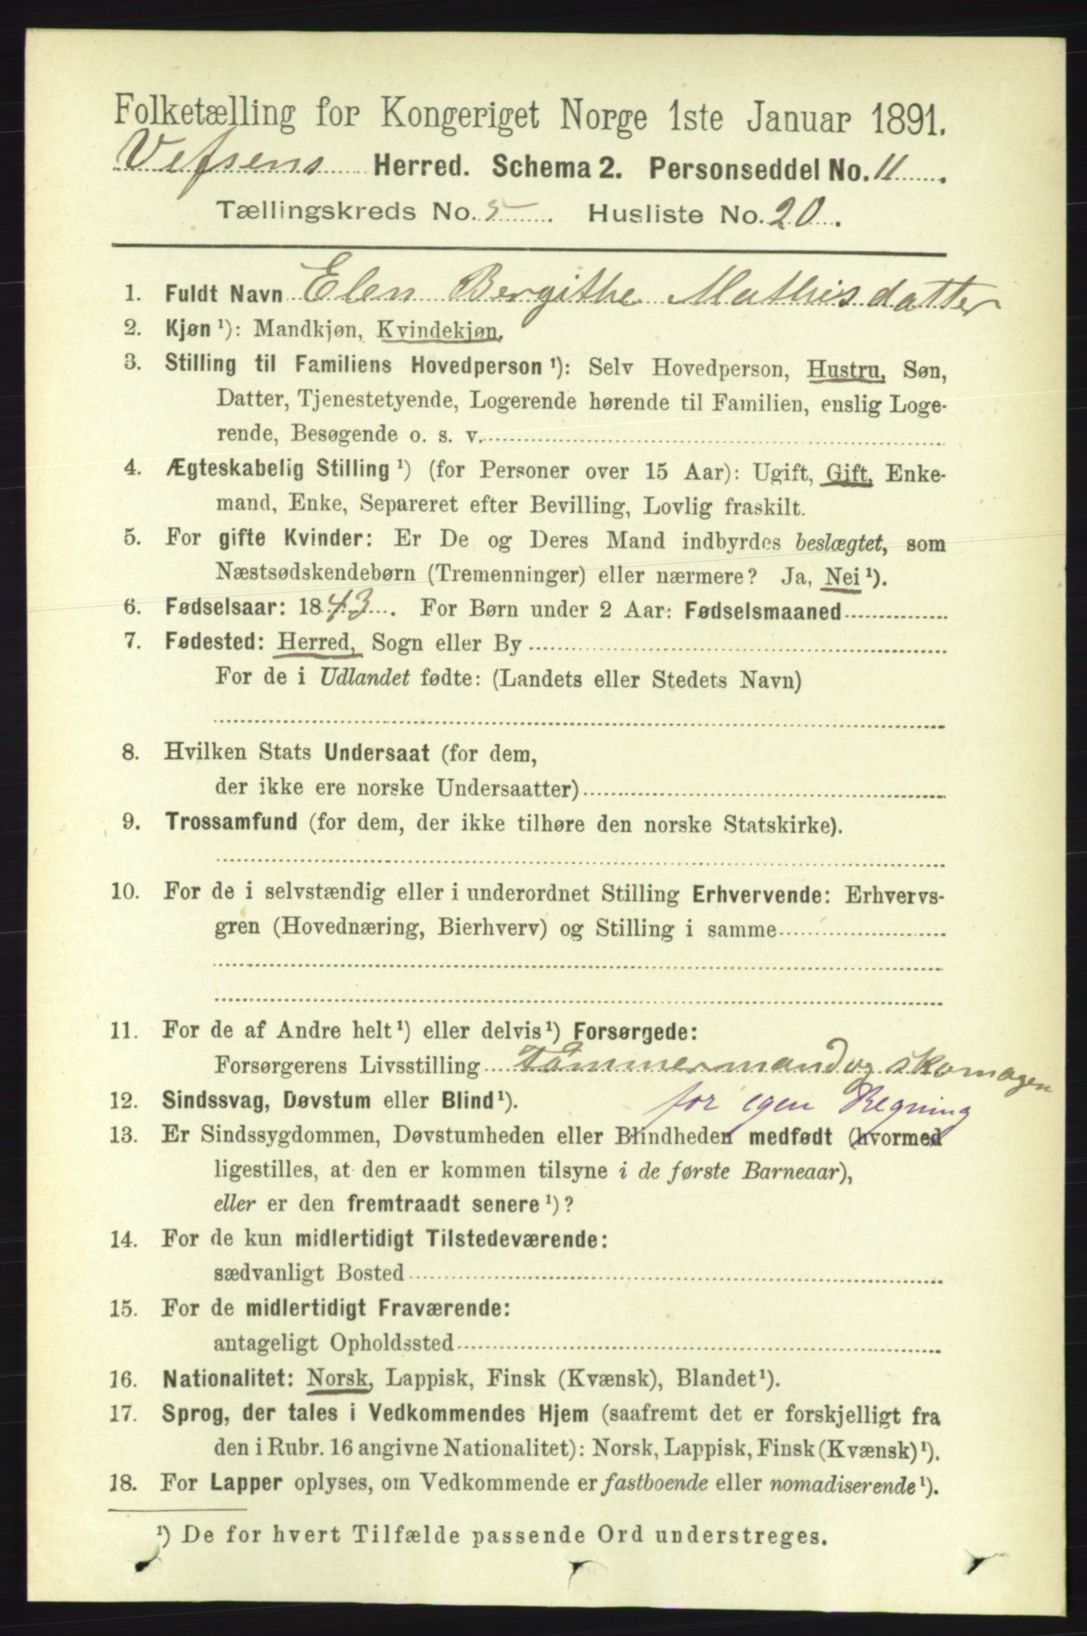 Folketælling for Kongeriget Norge 1ste Januar 1891.
Vefsens Herred. Schema 2. Personseddel No. 11.
Tællingskreds No. 5. Husliste No. 20.
1. Fuldt Navn Elen Bergithe Mathisdatter
2. Kjøn ¹): Mandkjøn, Kvindekjøn.
3. Stilling til Familiens Hovedperson ¹): Selv Hovedperson, Hustru, Søn,
Datter, Tjenestetyende, Logerende hørende til Familien, enslig Loge-
rende, Besøgende o. s. v.
4. Ægteskabelig Stilling ¹) (for Personer over 15 Aar): Ugift, Gift, Enke-
mand, Enke, Separeret efter Bevilling, Lovlig fraskilt.
5. For gifte Kvinder: Er De og Deres Mand indbyrdes beslægtet, som
Næstsødskendebørn (Tremenninger) eller nærmere? Ja, Nei ¹).
6. Fødselsaar: 1843. For Børn under 2 Aar: Fødselsmaaned
7. Fødested: Herred, Sogn eller By
For de i Udlandet fødte: (Landets eller Stedets Navn)
8. Hvilken Stats Undersaat (for dem,
der ikke ere norske Undersaatter)
9. Trossamfund (for dem, der ikke tilhøre den norske Statskirke).
10. For de i selvstændig eller i underordnet Stilling Erhvervende: Erhvervs-
gren (Hovednæring, Bierhverv) og Stilling i samme
11. For de af Andre helt ¹) eller delvis ¹) Forsørgede:
Forsørgerens Livsstilling Tømmermand og skomagen
for egen Regning
12. Sindssvag, Døvstum eller Blind ¹).
13. Er Sindssygdommen, Døvstumheden eller Blindheden medfødt (hvormed
ligestilles, at den er kommen tilsyne i de første Barneaar),
eller er den fremtraadt senere ¹)?
14. For de kun midlertidigt Tilstedeværende:
sædvanligt Bosted
15. For de midlertidigt Fraværende:
antageligt Opholdssted
16. Nationalitet: Norsk, Lappisk, Finsk (Kvænsk), Blandet ¹).
17. Sprog, der tales i Vedkommendes Hjem (saafremt det er forskjelligt fra
den i Rubr. 16 angivne Nationalitet): Norsk, Lappisk, Finsk (Kvænsk) ¹).
18. For Lapper oplyses, om Vedkommende er fastboende eller nomadiserende ¹).
¹) De for hvert Tilfælde passende Ord understreges.